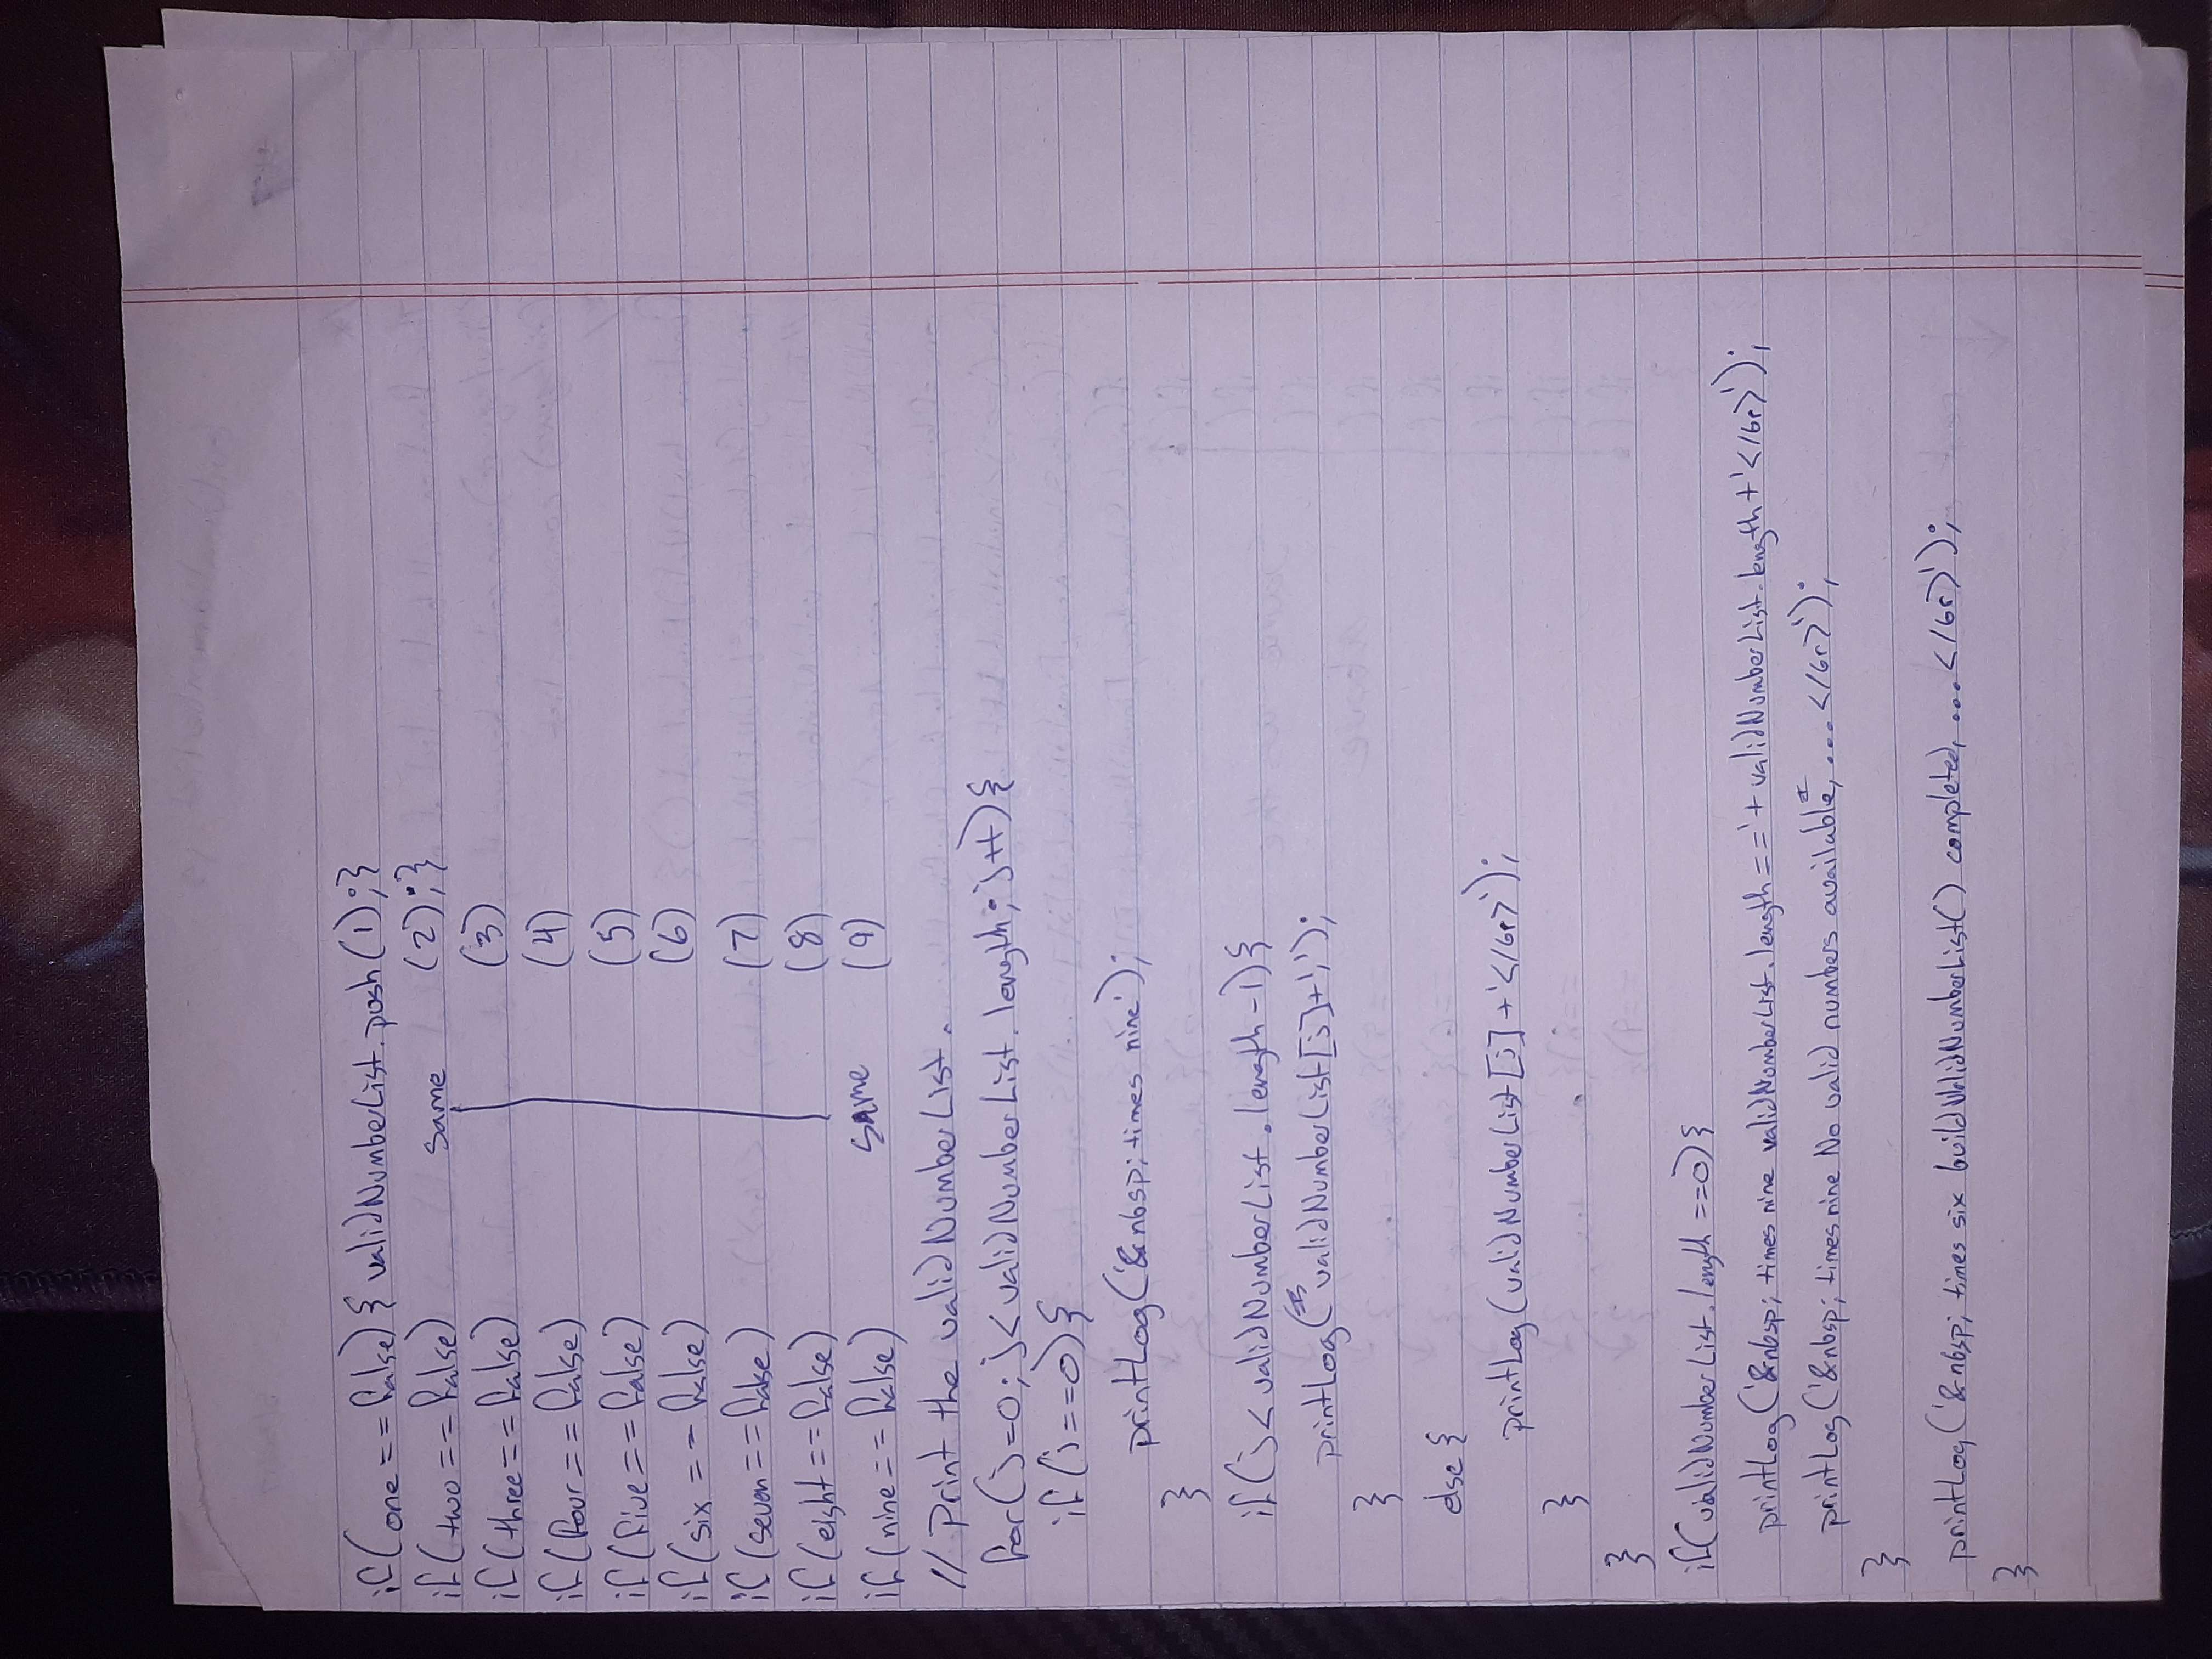 if(one==false){validNumberList.push(1);}
if(two==false) same (2);}
if(three==false) (3)
if(four==false) (4)
if(five==false) (5)
if(six==false) (6)
if(seven==false) (7)
if(eight==false) (8)
if(nine==false) same (9)
// Print the validNumberList.
for(j=0; j<validNumberList.length; j++){
if(j==0){
printLog('&nbsp; times nine');
}
if(j<validNumberList.length-1){
printLog(validNumberList[j]+',');
}
else{
printLog(validNumberList[j]+'</br>');
}
}
if(validNumberList.length==0){
printLog('&nbsp; times nine validNumberList.length=='+validNumberList.length+'</br>');
printLog('&nbsp; times nine No valid numbers available, ...</br>');
}
printLog('&nbsp; times six buildValidNumberList() completed, ...</br>');
}